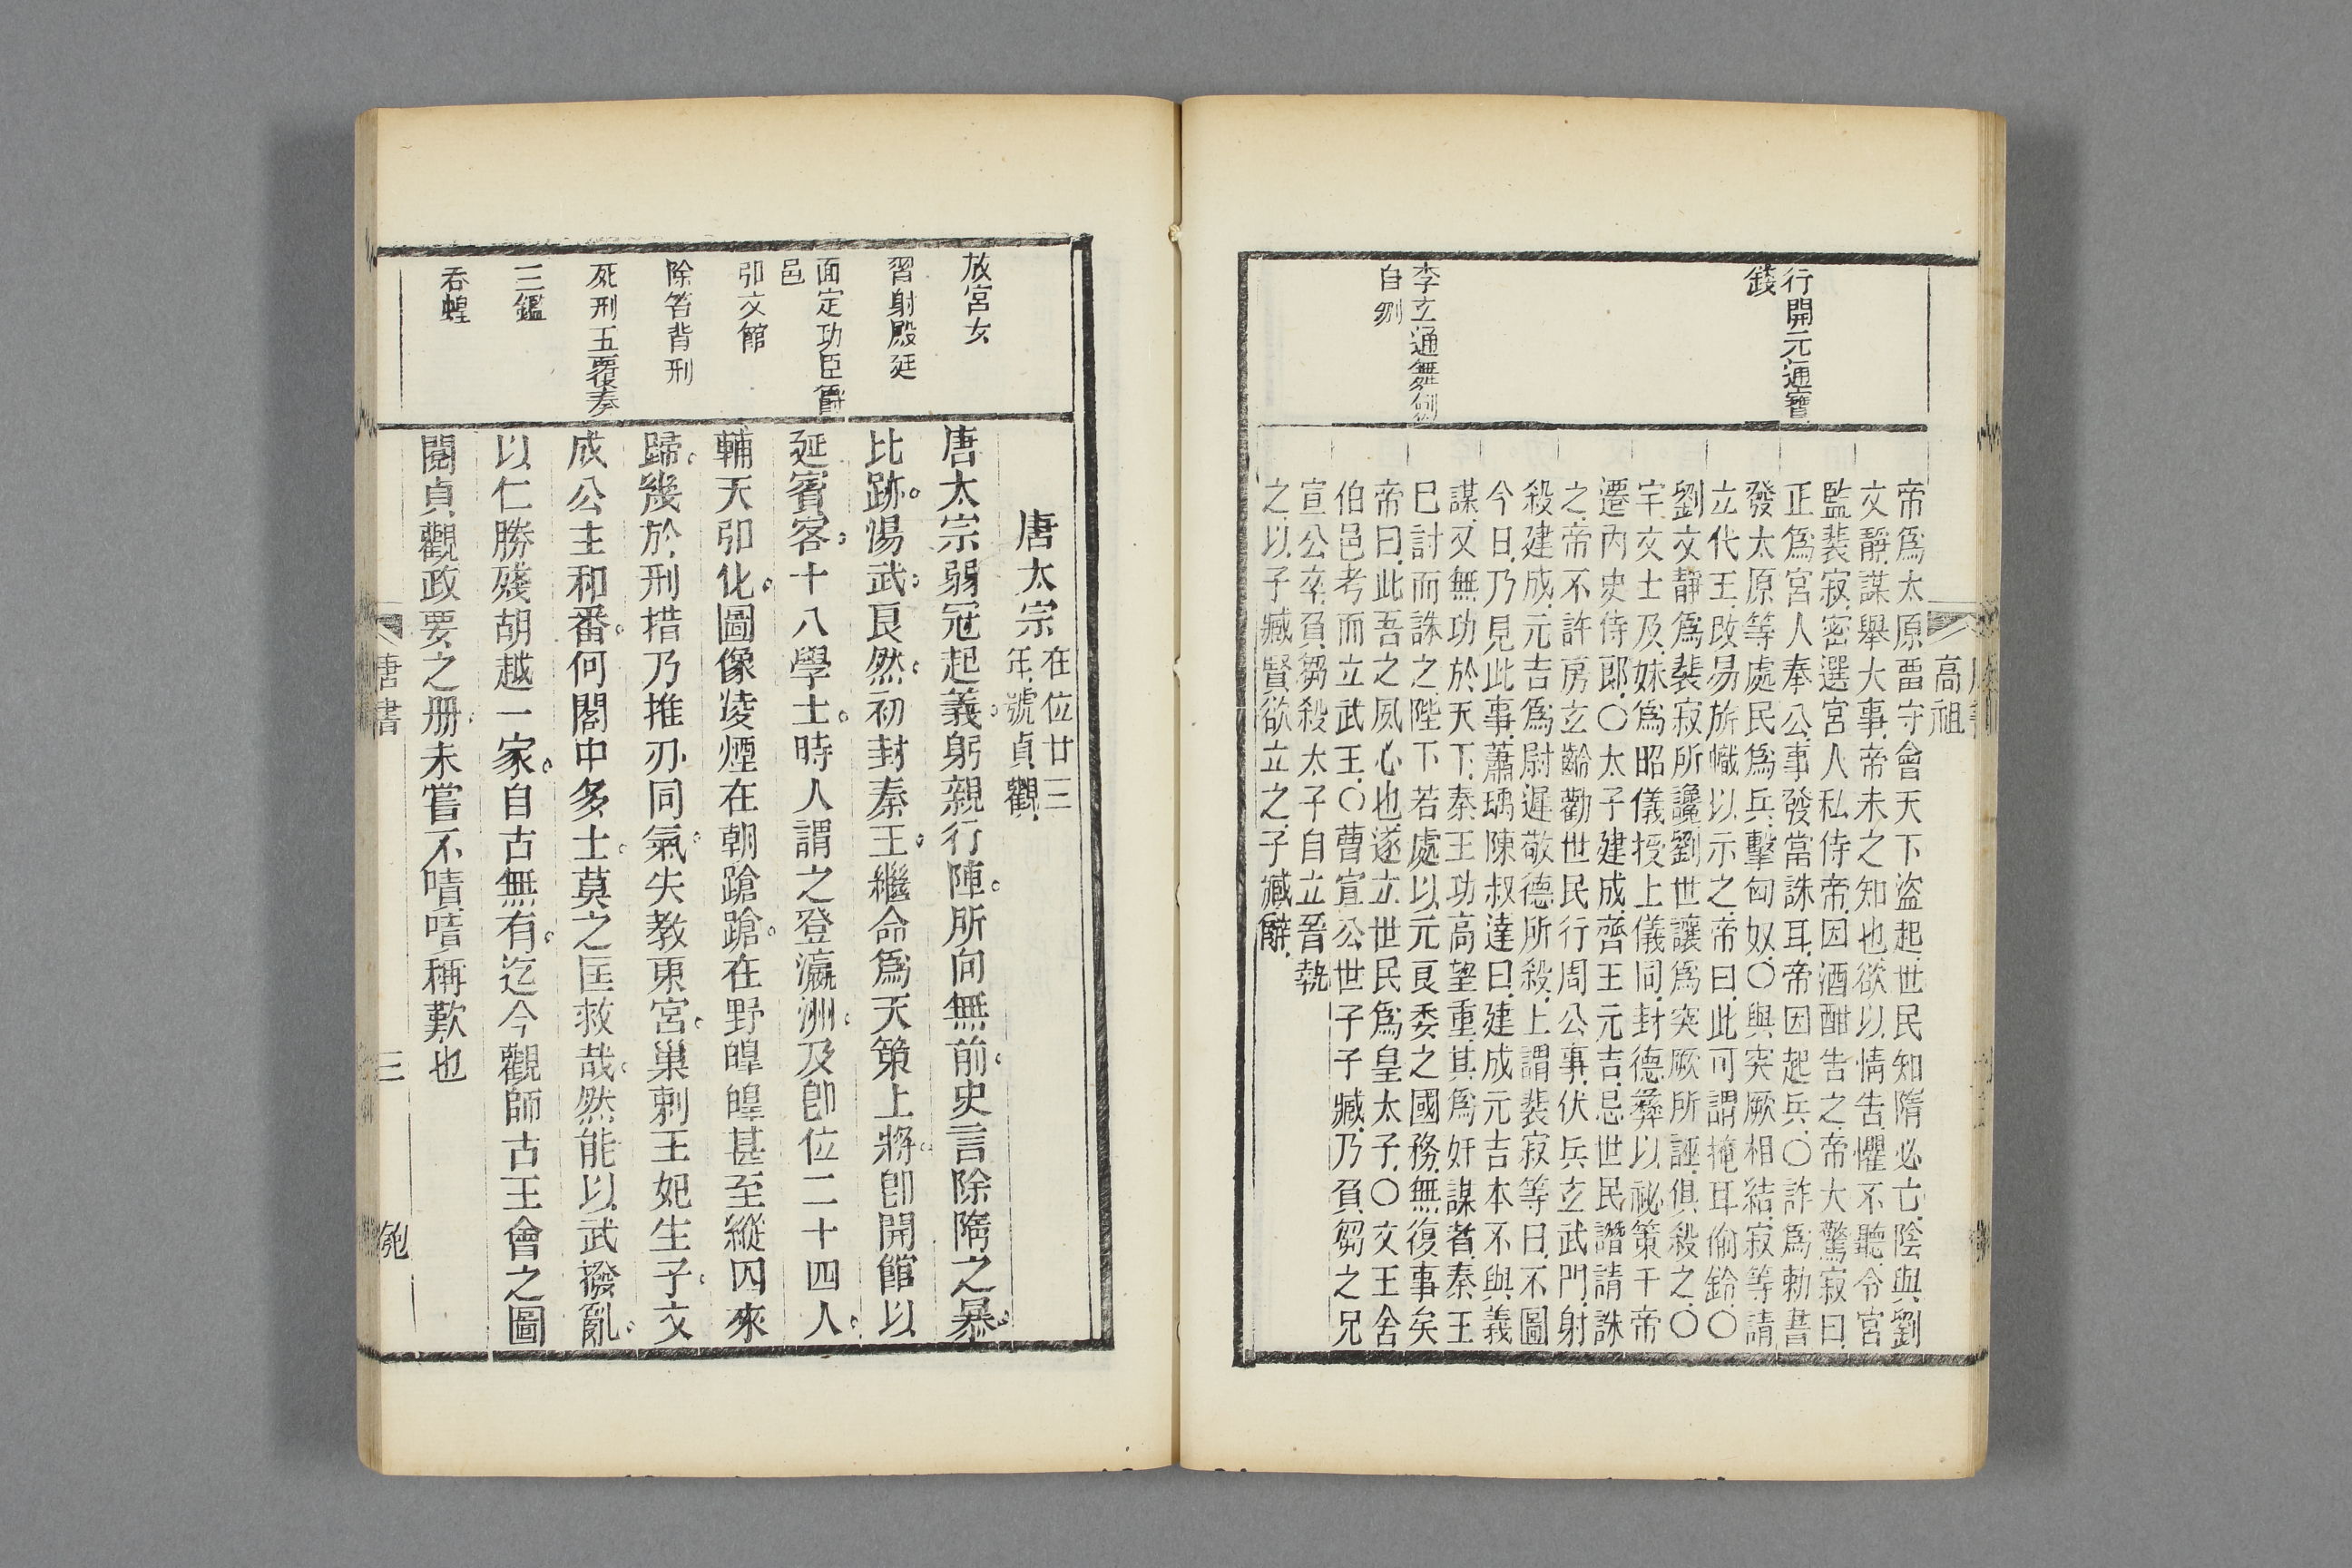 高祖
行開元通寶
錢
李玄通舞劍
自刎
帝爲太原畱守會天下盜起世民知隋必亡陰與劉
文靜謀舉大事帝未之知也欲以情告懼不聽令宮
監裴寂密選宮人私侍帝因酒酣告之帝大驚寂曰
正爲宮人奉公事發當誅耳帝因起兵○詐爲勅書
發太原等處民爲兵擊匈奴○與突厥相結寂等請
立代王改易旂幟以示之帝曰此可謂掩耳偷鈴○
劉文靜爲裴寂所讒劉世讓爲突厥所誣俱殺之○
宇文士及妹爲昭儀授上儀同封德彝以祕策干帝
遷內史侍郎○太子建成齊王元吉忌世民譖請誅
之帝不許房玄齡勸世民行周公事伏兵玄武門射
殺建成元吉爲尉遲敬德所殺上謂裴寂等曰不圖
今日乃見此事蕭瑀陳叔達曰建成元吉本不與義
謀又無功於天下秦王功高望重其爲奸謀者秦王
已討而誅之陛下若處以元良委之國務無復事矣
帝曰此吾之夙心也遂立世民爲皇太子○文王舍
伯邑考而立武王○曹宣公世子子臧乃負芻之兄
宣公卒負芻殺太子自立晉執
之以子臧賢欲立之子臧辭
放宮女
習射殿廷
面定功臣爵
邑
弘文館
除笞背刑
死刑五覆奏
三鑑
吞蝗
唐太宗 在位廿三
年號貞觀
唐太宗弱冠起義躬親行陣所向無前史言除隋之暴
比跡湯武良然初封秦王繼命爲天策上將卽開館以
延賓客十八學士時人謂之登瀛洲及卽位二十四人
輔天弘化圖像凌煙在朝蹌蹌在野皥皥甚至縱囚來
歸幾於刑措乃推刃同氣失教東宮巢剌王妃生子文
成公主和番何閣中多士莫之匡救哉然能以武撥亂
以仁勝殘胡越一家自古無有迄今觀師古王會之圖
閱貞觀政要之册未嘗不嘖嘖稱歎也
唐書
三